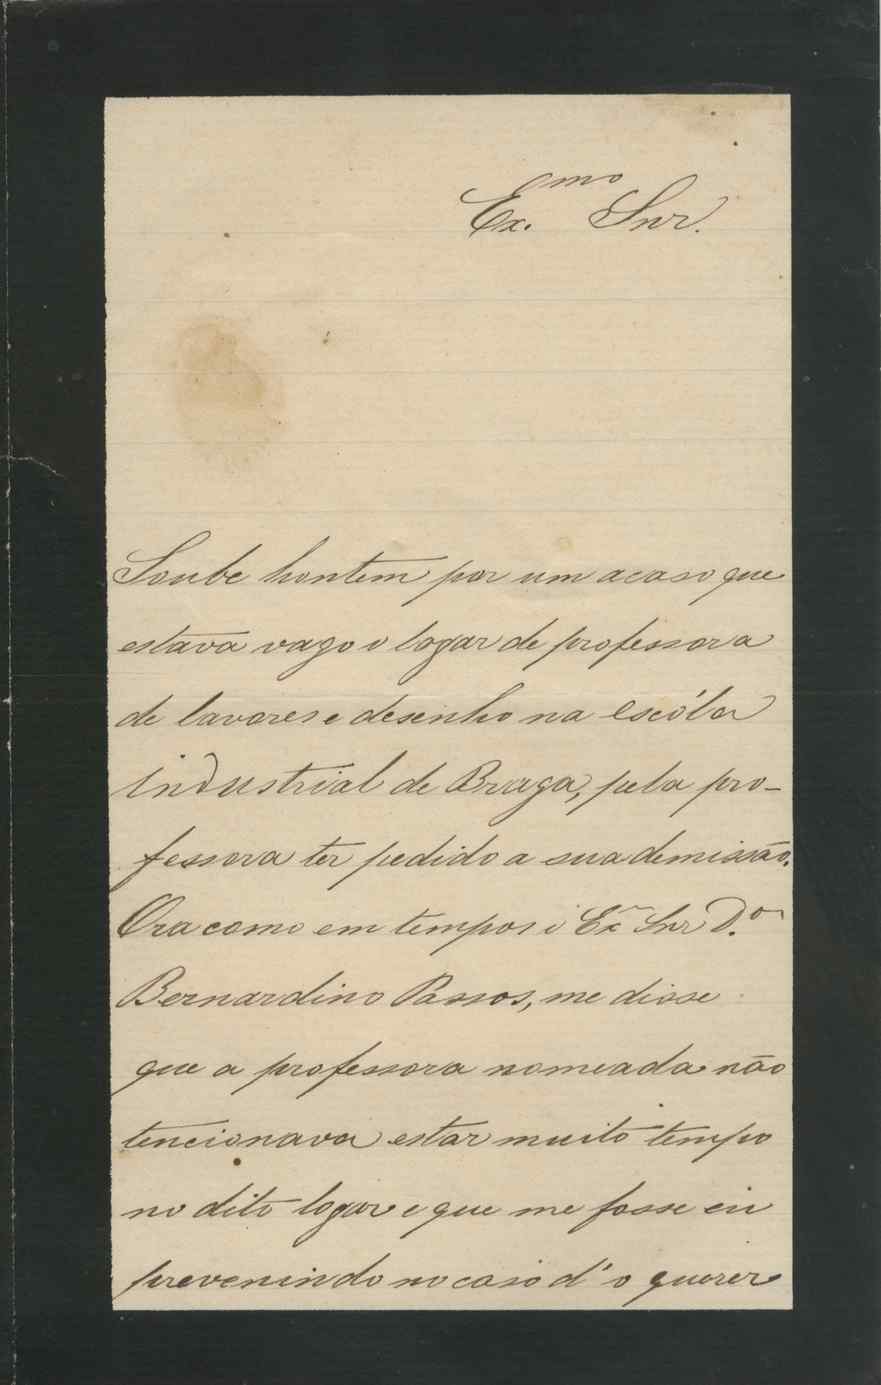 Ex.mo Snr.
Soube hontem por um acaso que
estava vago o logar de professora
de lavores e desenho na escóla
industrial de Braga, pela pro-
fessora ter pedido a sua demissão.
Ora como em tempos o Ex.mo Snr D.or
Bernardino Passos, me disse
que a professora nomeada não
tencionava estar muito tempo
no dito logar e que me fosse eu
prevenindo no caso d'o querer